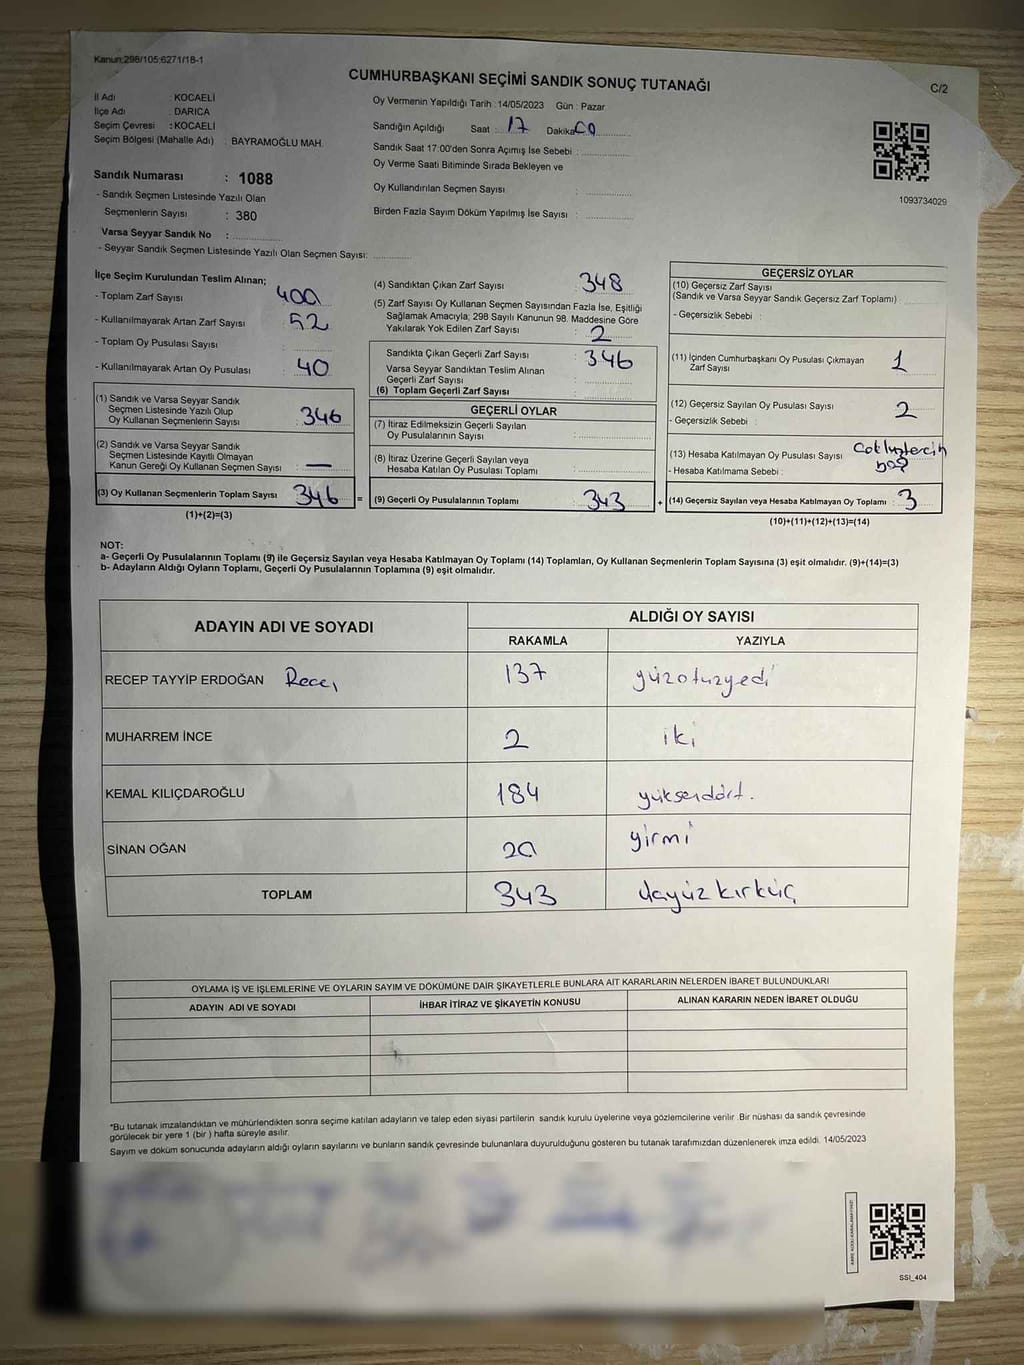 Kanun:298/105:6271/18-1
CUMHURBAŞKANI SEÇİMİ SANDIK SONUÇ TUTANAĞI
C/2
İl Adı : KOCAELİ
İlçe Adı : DARICA
Seçim Çevresi : KOCAELİ
Seçim Bölgesi (Mahalle Adı) : BAYRAMOĞLU MAH.
Sandık Numarası : 1088
- Sandık Seçmen Listesinde Yazılı Olan
Seçmenlerin Sayısı : 380
Varsa Seyyar Sandık No :
- Seyyar Sandık Seçmen Listesinde Yazılı Olan Seçmen Sayısı:
Oy Vermenin Yapıldığı Tarih : 14/05/2023 Gün : Pazar
Sandığın Açıldığı Saat : 17 Dakika
Sandık Saat 17:00'den Sonra Açımış İse Sebebi :
Oy Verme Saati Bitiminde Sırada Bekleyen ve
Oy Kullandırılan Seçmen Sayısı :
Birden Fazla Sayım Döküm Yapılmış İse Sayısı :
1093734029
İlçe Seçim Kurulundan Teslim Alınan;
- Toplam Zarf Sayısı : 400
- Kullanılmayarak Artan Zarf Sayısı : 52
- Toplam Oy Pusulası Sayısı :
- Kullanılmayarak Artan Oy Pusulası : 40
(1) Sandık ve Varsa Seyyar Sandık
Seçmen Listesinde Yazılı Olup
Oy Kullanan Seçmenlerin Sayısı : 346
(2) Sandık ve Varsa Seyyar Sandık
Seçmen Listesinde Kayıtlı Olmayan
Kanun Gereği Oy Kullanan Seçmen Sayısı : —
(3) Oy Kullanan Seçmenlerin Toplam Sayısı : 346 =
(1)+(2)=(3)
(4) Sandıktan Çıkan Zarf Sayısı : 348
(5) Zarf Sayısı Oy Kullanan Seçmen Sayısından Fazla İse, Eşitliği
Sağlamak Amacıyla; 298 Sayılı Kanunun 98. Maddesine Göre
Yakılarak Yok Edilen Zarf Sayısı : 2
Sandıkta Çıkan Geçerli Zarf Sayısı : 346
Varsa Seyyar Sandıktan Teslim Alınan
Geçerli Zarf Sayısı :
(6) Toplam Geçerli Zarf Sayısı :
GEÇERLİ OYLAR
(7) İtiraz Edilmeksizin Geçerli Sayılan
Oy Pusulalarının Sayısı :
(8) İtiraz Üzerine Geçerli Sayılan veya
Hesaba Katılan Oy Pusulası Toplamı :
(9) Geçerli Oy Pusulalarının Toplamı : 343 +
GEÇERSİZ OYLAR
(10) Geçersiz Zarf Sayısı
(Sandık ve Varsa Seyyar Sandık Geçersiz Zarf Toplamı) :
- Geçersizlik Sebebi :
(11) İçinden Cumhurbaşkanı Oy Pusulası Çıkmayan
Zarf Sayısı : 1
(12) Geçersiz Sayılan Oy Pusulası Sayısı : 2
- Geçersizlik Sebebi :
(13) Hesaba Katılmayan Oy Pusulası Sayısı
- Hesaba Katılmama Sebebi :
(14) Geçersiz Sayılan veya Hesaba Katılmayan Oy Toplamı : 3
(10)+(11)+(12)+(13)=(14)
NOT:
a- Geçerli Oy Pusulalarının Toplamı (9) ile Geçersiz Sayılan veya Hesaba Katılmayan Oy Toplamı (14) Toplamları, Oy Kullanan Seçmenlerin Toplam Sayısına (3) eşit olmalıdır. (9)+(14)=(3)
b- Adayların Aldığı Oyların Toplamı, Geçerli Oy Pusulalarının Toplamına (9) eşit olmalıdır.
ADAYIN ADI VE SOYADI
ALDIĞI OY SAYISI
RAKAMLA YAZIYLA
RECEP TAYYİP ERDOĞAN 137 yüzotuzyedi
MUHARREM İNCE 2 iki
KEMAL KILIÇDAROĞLU 184 yüksendört.
SİNAN OĞAN 20 yirmi
TOPLAM 343 üçyüz kırküç
OYLAMA İŞ VE İŞLEMLERİNE VE OYLARIN SAYIM VE DÖKÜMÜNE DAİR ŞİKAYETLERLE BUNLARA AİT KARARLARIN NELERDEN İBARET BULUNDUKLARI
ADAYIN ADI VE SOYADI İHBAR İTİRAZ VE ŞİKAYETİN KONUSU ALINAN KARARIN NEDEN İBARET OLDUĞU
*Bu tutanak imzalandıktan ve mühürlendikten sonra seçime katılan adayların ve talep eden siyasi partilerin sandık kurulu üyelerine veya gözlemcilerine verilir .Bir nüshası da sandık çevresinde
görülecek bir yere 1 (bir ) hafta süreyle asılır.
Sayım ve döküm sonucunda adayların aldığı oyların sayılarını ve bunların sandık çevresinde bulunanlara duyurulduğunu gösteren bu tutanak tarafımızdan düzenlenerek imza edildi. 14/05/2023
SSI_404